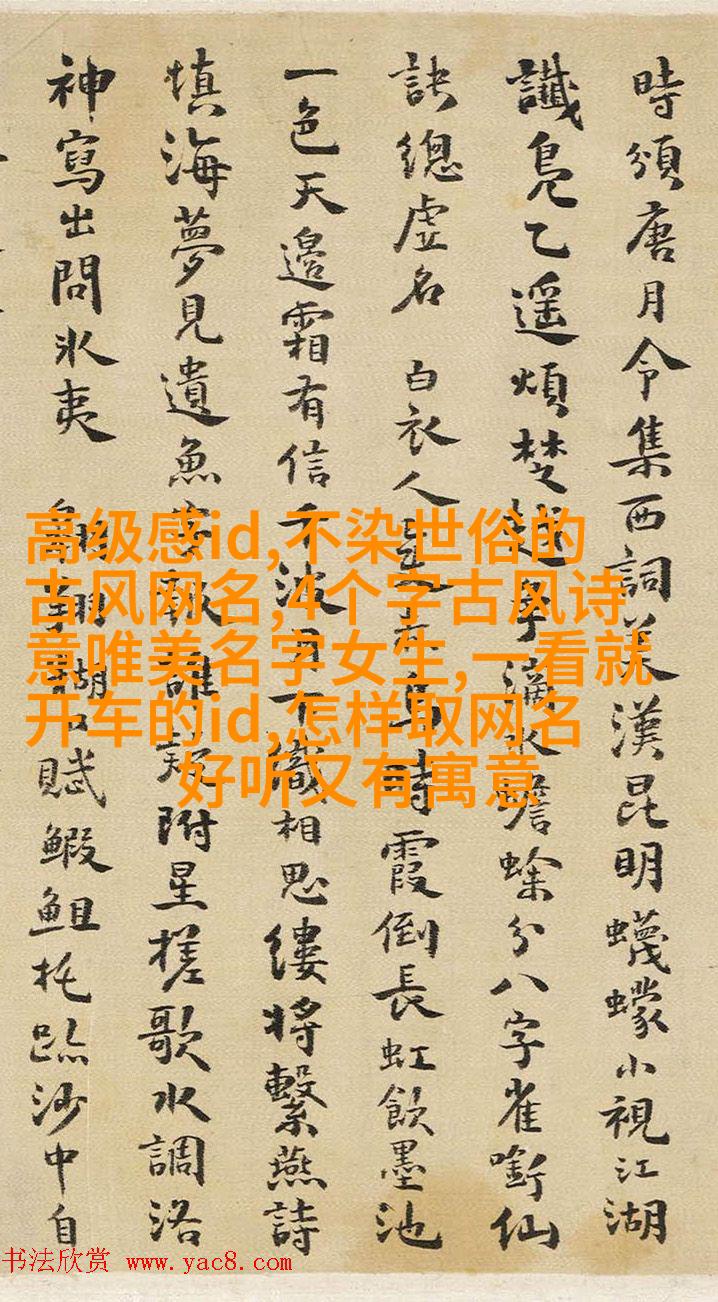 時頒唐月令集西詞美漢昆明蠛蠓小視江湖
讖鳧乙遥煩楚越字滴水蟾蜍分八字雀銜仙
訣總虚名 白衣人
時霞倒長虹飲墨池
一色天邊霜有信千波月下識相思縷將繫燕詩
填海夢見遺魚
誰疑附星槎歌水調洛
神寫出問氷夷
賦鰕䱉托跡沙中自
高级感id,不染世俗的
古风网名,4个字古风诗
意唯美名字女生,一看就
开车的id,怎样取网名
好听又有寓意
书法欣赏 www.yac8.com